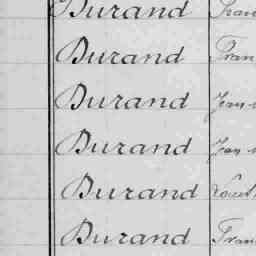 Durand
Durand Fran
Durand Jean
Durand Jean
Durand Louis
Durand Fran